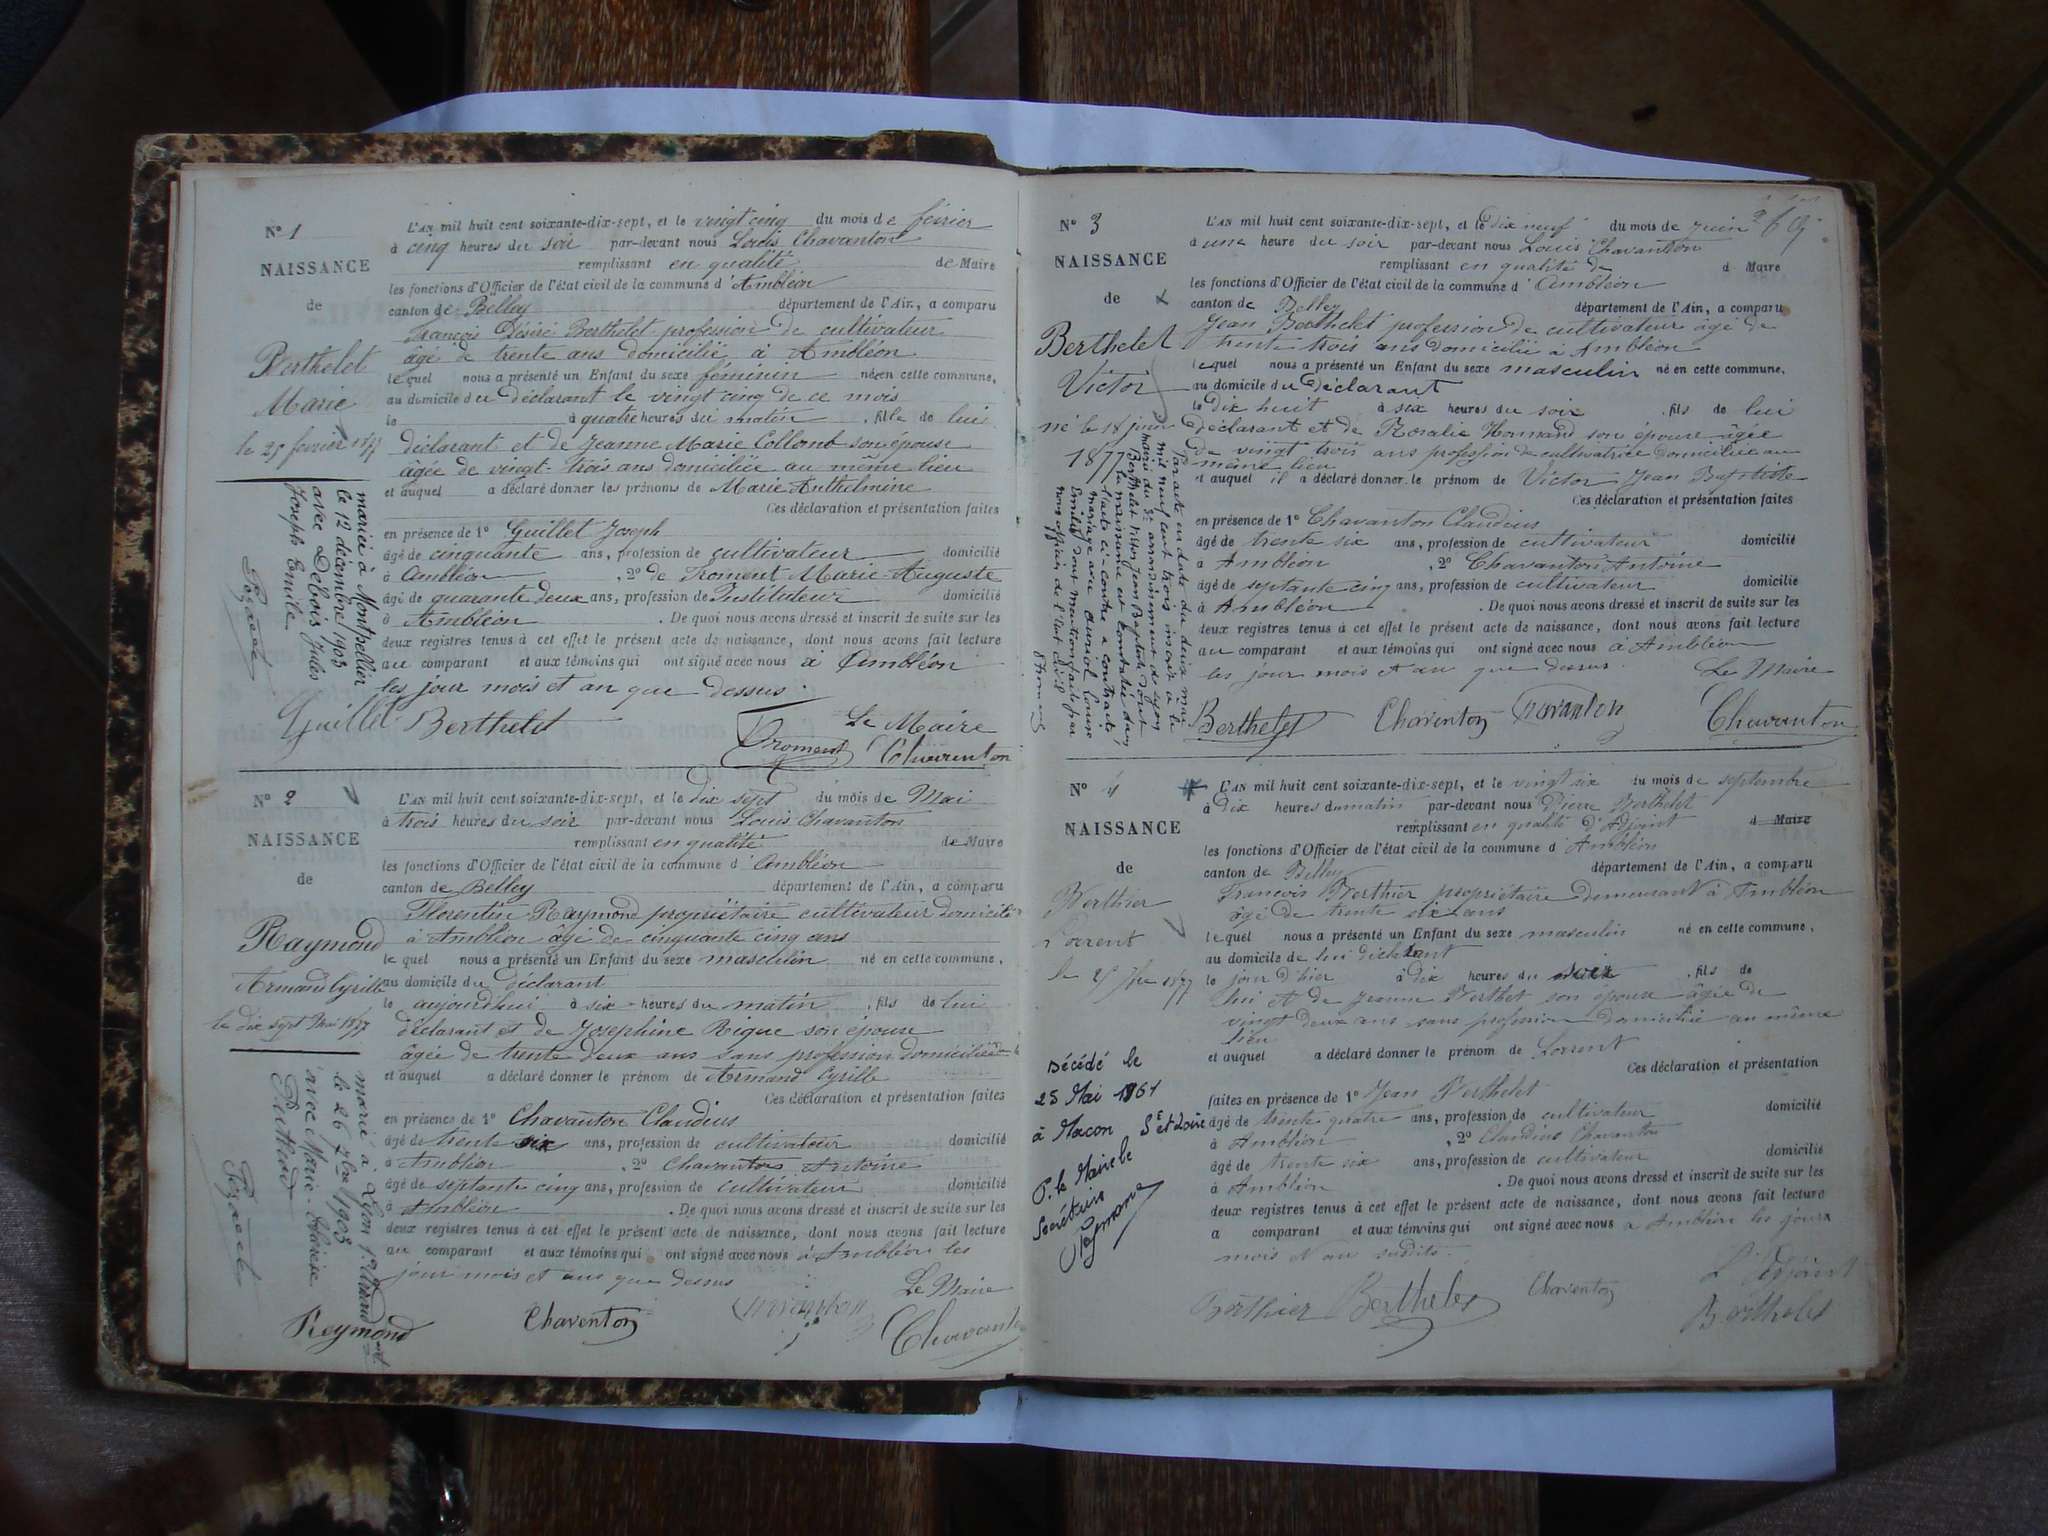 N° 1
NAISSANCE
de
Berthelet
Marie
le 25 fevrier 1877
mariée à Montpellier
le 12 décembre 1903
avec Debois Jules
Joseph Emile
L'AN mil huit cent soixante-dix-sept, et le vingt cinq du mois de février
à cinq heures du soir par-devant nous Louis Chavanton
remplissant en qualité de Maire
les fonctions d'Officier de l'état civil de la commune d'Ambléon
canton de Belley département de l'Ain, a comparu
François Désiré Berthelet profession de cultivateur
âgé de trente ans domicilié à Ambléon
lequel nous a présenté un Enfant du sexe féminin né en cette commune,
au domicile du déclarant le vingt cinq de ce mois
le à quatre heures du matin, fille de lui
déclarant et de Jeanne Marie Collomb son épouse
âgée de vingt-trois ans domiciliée au même lieu
et auquel a déclaré donner les prénoms de Marie Anthelmine
Ces déclaration et présentation faites
en présence de 1° Guillet Joseph
âgé de cinquante ans, profession de cultivateur domicilié
à Ambléon, 2° de Froment Marie Auguste
âgé de quarante deux ans, profession de Instituteur domicilié
à Ambléon. De quoi nous avons dressé et inscrit de suite sur les
deux registres tenus à cet effet le présent acte de naissance, dont nous avons fait lecture
au comparant et aux témoins qui ont signé avec nous à Ambléon
les jour mois et an que dessus.
Le Maire
Guillet Berthelet Froment Chavanton
N° 2
NAISSANCE
de
Raymond
Armand Cyrille
le dix sept Mai 1877
marié à Lyon
le 26 7bre 1903
avec Marie
L'AN mil huit cent soixante-dix-sept, et le dix sept du mois de Mai
à trois heures du soir par-devant nous Louis Chavanton
remplissant en qualité de Maire
les fonctions d'Officier de l'état civil de la commune d'Ambléon
canton de Belley département de l'Ain, a comparu
Florentin Raymond propriétaire cultivateur domicilié
à Ambléon âgé de cinquante cinq ans
lequel nous a présenté un Enfant du sexe masculin né en cette commune,
au domicile du déclarant
le aujourdhui à six heures du matin, fils de lui
déclarant et de Josephine Rigue son épouse
âgée de trente deux ans sans profession domiciliée
et auquel a déclaré donner le prénom de Armand Cyrille
Ces déclaration et présentation faites
en présence de 1° Chavanton Claudius
âgé de trente six ans, profession de cultivateur domicilié
à Ambléon, 2° Chavanton Antoine
âgé de septante cinq ans, profession de cultivateur domicilié
à Ambléon. De quoi nous avons dressé et inscrit de suite sur les
deux registres tenus à cet effet le présent acte de naissance, dont nous avons fait lecture
au comparant et aux témoins qui ont signé avec nous à Ambléon les
jour mois et ans que dessus
Le Maire
Reymond Chaventon Chavanton
N° 3
NAISSANCE
de
Berthelet
Victor
né le 18 juin
1877
Par acte en date du deux mai
mil neuf cent trois inscrit à la
mairie du 3e arrondissement de Lyon
Berthelet Victor Jean Baptiste dont
la naissance est constatée dans
l'acte ci-contre a contracté
mariage avec Auriol Louise
L'AN mil huit cent soixante-dix-sept, et le dix neuf du mois de Juin
à une heure du soir par-devant nous Louis Chavanton
remplissant en qualité de d Maire
les fonctions d'Officier de l'état civil de la commune d'Ambléon
canton de Belley département de l'Ain, a comparu
Jean Berthelet profession de cultivateur âgé de
trente trois ans domicilié à Ambléon
lequel nous a présenté un Enfant du sexe masculin né en cette commune,
au domicile du déclarant
le dix huit à six heures du soir, fils de lui
déclarant et de Rosalie son épouse âgée
de vingt trois ans profession de cultivatrice domiciliée au
même lieu
et auquel il a déclaré donner le prénom de Victor Jean Baptiste
Ces déclaration et présentation faites
en présence de 1° Chavanton Claudius
âgé de trente six ans, profession de cultivateur domicilié
à Ambléon, 2° Chavanton Antoine
âgé de septante cinq ans, profession de cultivateur domicilié
à Ambléon. De quoi nous avons dressé et inscrit de suite sur les
deux registres tenus à cet effet le présent acte de naissance, dont nous avons fait lecture
au comparant et aux témoins qui ont signé avec nous à Ambléon
les jour mois et an que dessus Le Maire
Berthelet Chaventon Chavanton
N° 4
NAISSANCE
de
Berthier
Lorrent
le 25 7bre 1877
Décédé le
25 Mai 1961
à Macon St et Loire
P. le Maire le
Secrétaire
L'AN mil huit cent soixante-dix-sept, et le vingt six du mois de septembre
à dix heures du matin par-devant nous Pierre Berthelet
remplissant en qualité d'Adjoint d Maire
les fonctions d'Officier de l'état civil de la commune d'Ambléon
canton de Belley département de l'Ain, a comparu
François Berthier propriétaire demeurant à Ambléon
âgé de trente six ans
lequel nous a présenté un Enfant du sexe masculin né en cette commune,
au domicile de lui déclarant
le jour d'hier à dix heures du soir, fils de
lui et de Jeanne Berthet son épouse âgée de
vingt deux ans sans profession domiciliée au même
lieu
et auquel a déclaré donner le prénom de Lorrent
Ces déclaration et présentation
faites en présence de 1° Jean Berthelet
âgé de trente quatre ans, profession de cultivateur domicilié
à Ambléon, 2° Claudius Chavanton
âgé de trente six ans, profession de cultivateur domicilié
à Ambléon. De quoi nous avons dressé et inscrit de suite sur les
deux registres tenus à cet effet le présent acte de naissance, dont nous avons fait lecture
a comparant et aux témoins qui ont signé avec nous à Ambléon les jour
mois et an susdits.
L'Adjoint
Berthier Berthelet Chaventon Berthelet